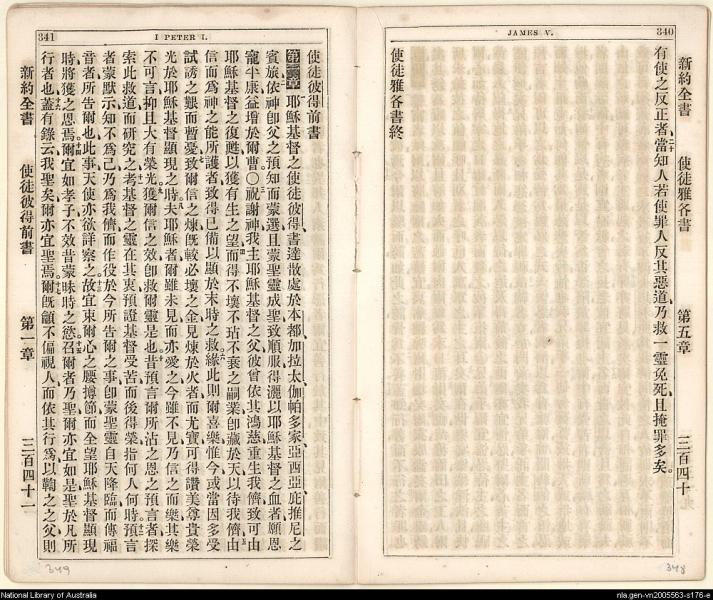 JAMES V.
340
新約全書 使徒雅各書 第五章 三百四十
有使之反正者、當知人若使罪人反其惡道、乃救一靈免死、且掩罪多矣。
使徒雅各書終
341
I PETER I.
使徒彼得前書
第一章 耶穌基督之使徒彼得書達散處於本都加拉太伽帕多家亞西亞庇推尼之
賓旅依神卽父之預知而蒙選且蒙聖靈成聖致順服得灑以耶穌基督之血者願恩
寵平康益增於爾曹〇祝謝神我主耶穌基督之父彼曾依其鴻慈重生我儕致可由
耶穌基督之復甦以獲有生之望而得不壞不玷不衰之嗣業卽藏於天以待我儕由
信而爲神之能所護者致得已備以顯於末時之救緣此則爾喜樂惟今或當因多受
試誘之艱而暫憂致爾信之煉旣較必壞之金見煉於火者而尤寶可得讚美尊貴榮
光於耶穌基督顯現之時夫耶穌者爾雖未見而亦愛之今雖不見乃信之而樂其樂
不可言抑且大有榮光獲爾信之效卽救爾靈是也昔預言爾所沾之恩之預言者探
索此救道而研究之考基督之靈在其衷預證基督受苦而後得榮指何人何時預言
者蒙默示知不爲己乃爲我儕而作役於今所告爾之事卽蒙聖靈自天降臨而傳福
音者所告爾也此事天使亦欲詳察之故宜束爾心之腰撙節而全望耶穌基督顯現
時將獲之恩焉爾宜如孝子不效昔蒙昧時之慾召爾者乃聖爾亦宜如是聖於凡所
行者也蓋有錄云我聖矣爾亦宜聖焉爾旣籲不偏視人而依其行爲以鞫之之父則
新約全書 使徒彼得前書 第一章 三百四十一
348
349
National Library of Australia
nla.gen-vn2005563-s176-e